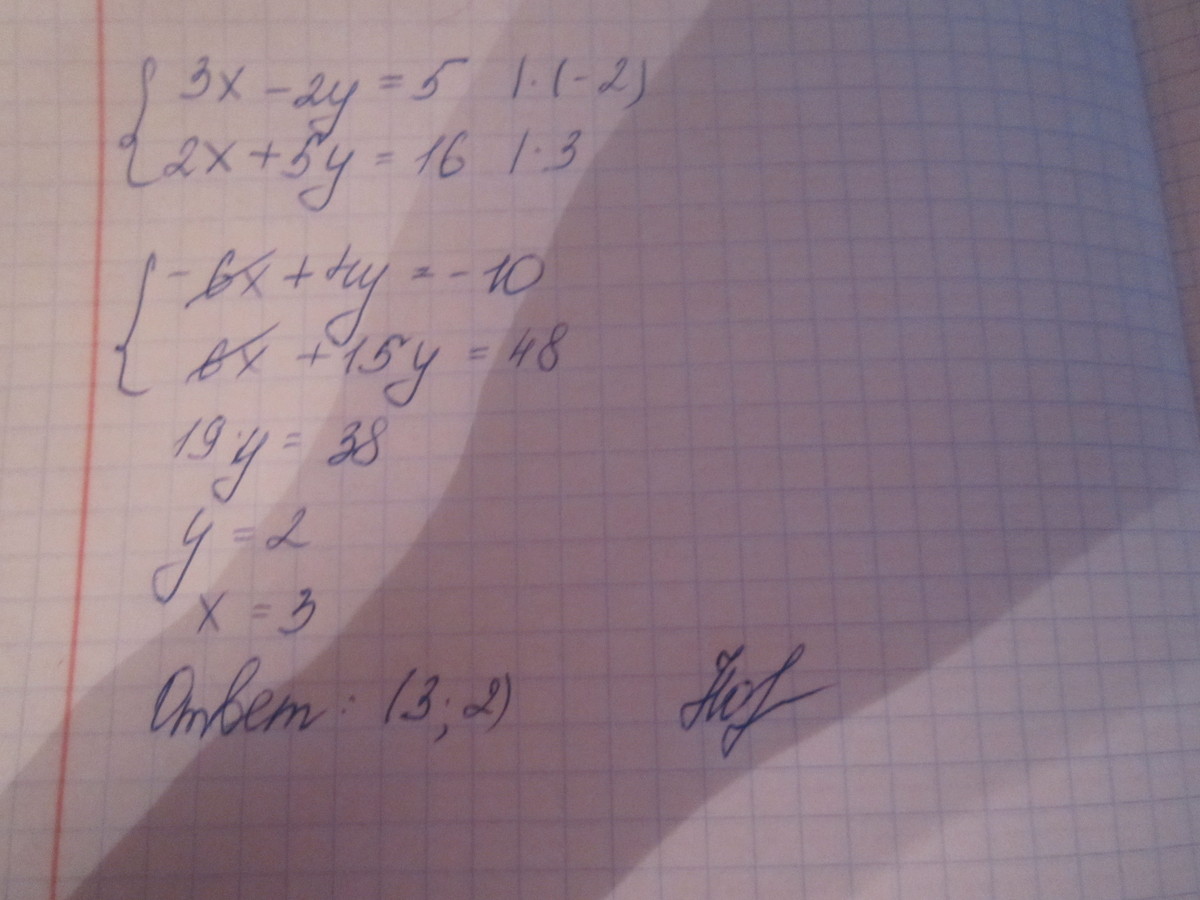 3x - 2y = 5 | · (-2)
2x + 5y = 16 | · 3
-6x + 4y = -10
6x + 15y = 48
19y = 38
y = 2
x = 3
Ответ: (3; 2)